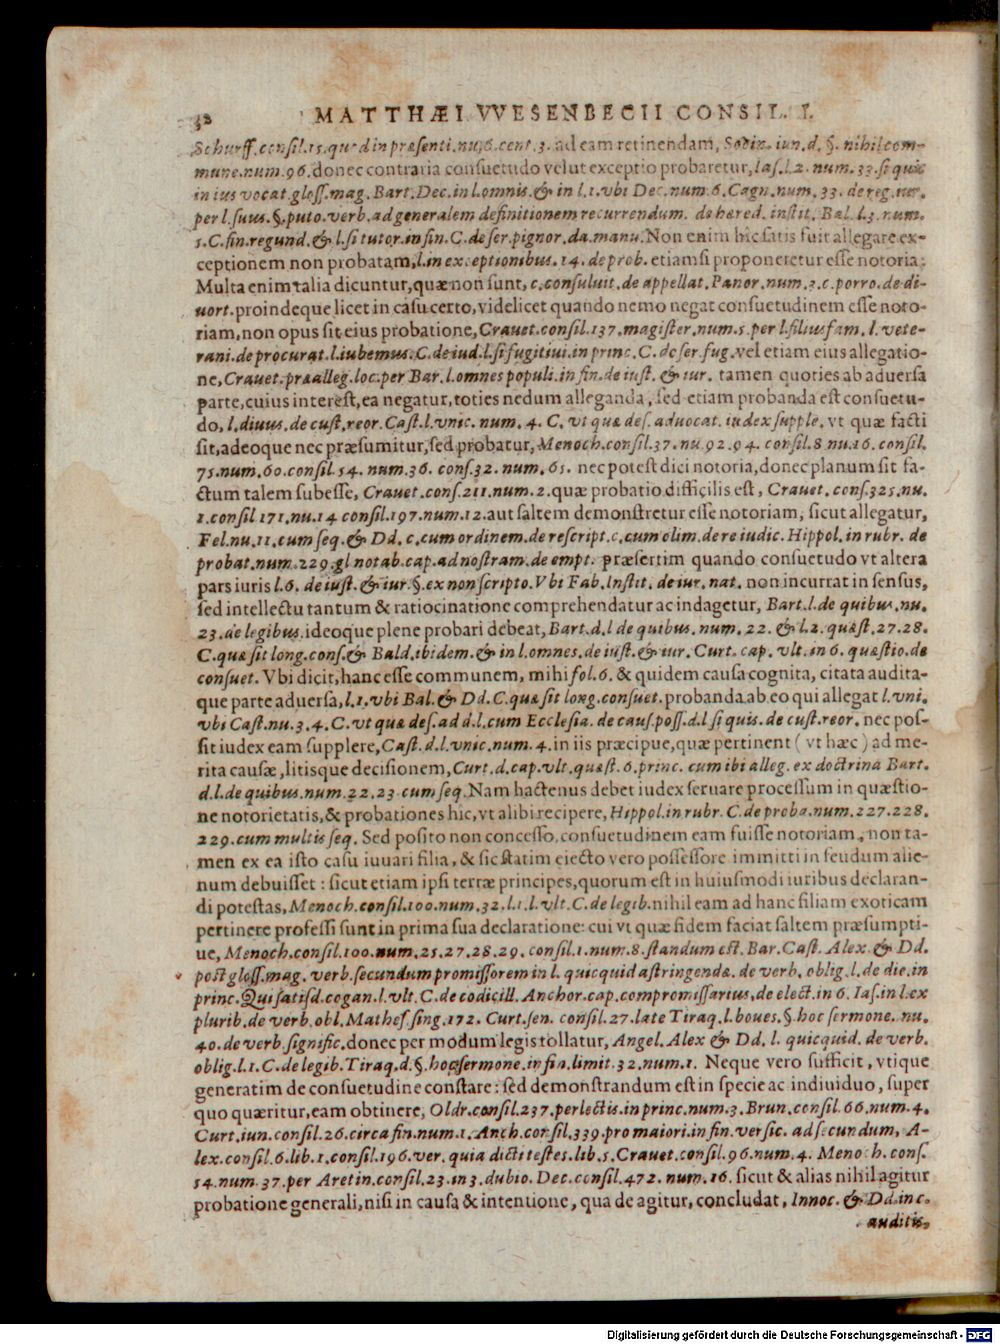 32 MATTHÆI VVESENBECII CONSIL. I.
Schurff.consil.15.quod in præsenti.nu.6.cent.3. ad eam retinendam, Socin. iun.d. §. nihil com-
mune.num.96.donec contraria consuetudo velut exceptio probaretur, Ias.l.2. num. 33.si quis
in ius vocat.gloss.mag. Bart. Dec. in l.omnis.& in l.1.vbi Dec.num.6. Cagn.num. 33. de reg.iur.
per l.suus.§.puto.verb.ad generalem definitionem recurrendum. de hæred. instit. Bal. l.3. num.
5.C.fin.regund.& l.si tutor.in fin.C.de ser.pignor.da.manu.Non enim hic satis fuit allegare ex-
ceptionem non probatam,l.in exceptionibus.14.de prob. etiamsi proponeretur esse notoria:
Multa enim talia dicuntur,quæ non sunt, c.consuluit.de appellat.Panor.num.3.c.porro.de di-
uort.proindeque licet in casu certo,videlicet quando nemo negat consuetudinem esse noto-
riam,non opus sit eius probatione,Crauet.consil.137.magister.num.5.per l.filiusfam. l.vete-
rani.de procurat.l.iubemus.C.de iud.l.si fugitiui.in princ.C.de ser.fug.vel etiam eius allegatio-
ne,Crauet.præalleg.loc.per Bar.l.omnes populi.in fin.de iust. & iur. tamen quoties ab aduersa
parte,cuius interest,ea negatur,toties nedum alleganda, sed etiam probanda est consuetu-
do, l.diuus.de cust.reor.Cast.l.vnic. num. 4. C. vt quæ des. aduocat. iudex supple. vt quæ facti
sit,adeoque nec præsumitur,sed probatur, Menoch.consil.37.nu.92.94. consil.8.nu.16.consil.
75.num.60.consil.54.num.36. cons.32.num.65. nec potest dici notoria,donec planum sit fa-
ctum talem subesse, Crauet.cons.211.num.2.quæ probatio difficilis est, Crauet.cons.325.nu.
1.consil 171.nu.14 consil.197.num.12.aut saltem demonstretur esse notoriam, sicut allegatur,
Fel.nu.11.cum seq.& Dd. c.cum ordinem.de rescript.c.cum olim.de re iudic.Hippol.in rubr. de
probat.num.229.gl notab.cap.ad nostram.de empt. præsertim quando consuetudo vt altera
pars iuris l.6. de iust.& iur.§.ex non scripto.Vbi Fab.Instit. de iur. nat. non incurrat in sensus,
sed intellectu tantum & ratiocinatione comprehendatur ac indagetur, Bart.l.de quibus.nu.
23.de legibus.ideoque plene probari debeat,Bart.d.l de quibus.num.22.& l.2.quæst.27.28.
C.quæ sit long.cons.& Bald.ibidem.& in l.omnes.de iust.& iur. Curt. cap. vlt.in 6. quæstio.de
consuet. Vbi dicit,hanc esse communem, mihi fol.6. & quidem causa cognita, citata audita-
que parte aduersa, l.1.vbi Bal.& Dd.C.quæ sit long.consuet.probanda ab eo qui allegat l.vni.
vbi Cast.nu.3.4.C.vt quæ des.ad d.l.cum Ecclesia. de caus.poss.d.l si quis.de cust.reor. nec pos-
sit iudex eam supplere,Cast.d.l.vnic.num.4.in iis præcipue,quæ pertinent (vt hæc) ad me-
rita causæ,litisque decisionem,Curt.d.cap.vlt.quæst.6.princ. cum ibi alleg. ex doctrina Bart.
d.l.de quibus.num.22.23.cum seq.Nam hactenus debet iudex seruare processum in quæstio-
ne notorietatis,& probationes hic,vt alibi recipere, Hippol.in rubr. C.de proba.num.227.228.
229.cum multis seq. Sed posito non concesso,consuetudinem eam fuisse notoriam, non ta-
men ex ea isto casu iuuari filia, & sic statim eiecto vero possessore immitti in feudum alie-
num debuisset : sicut etiam ipsi terræ principes,quorum est in huiusmodi iuribus declaran-
di potestas,Menoch.consil.100.num.32.l.1.l.vlt.C.de legib.nihil eam ad hanc filiam exoticam
pertinere professi sunt in prima sua declaratione: cui vt quæ fidem faciat saltem præsumpti-
ue, Menoch.consil.100.num.25.27.28.29. consil.1.num.8.standum est. Bar.Cast. Alex. & Dd.
post gloss.mag. verb.secundum promissorem in l. quicquid astringendæ. de verb. oblig.l.de die.in
princ.Qui satisd.cogan.l.vlt.C.de codicill. Anchor.cap.compromissarius,de elect.in 6. Ias.in l.ex
plurib.de verb.obl.Mathes.sing.172. Curt.sen. consil.27.late Tiraq.l.boues.§.hoc sermone. nu.
40.de verb.signific.donec per modum legis tollatur, Angel.Alex & Dd. l. quicquid. de verb.
oblig.l.1.C.de legib.Tiraq.d.§.hoc sermone.in fin.limit.32.num.1. Neque vero sufficit, vtique
generatim de consuetudine constare : sed demonstrandum est in specie ac indiuiduo, super
quo quæritur,eam obtinere, Oldr.consil.237.perlectis.in princ.num.3.Brun.consil.66.num.4.
Curt.iun.consil.26.circa fin.num.1.Anch.consil.339.pro maiori.in fin.versic. ad secundum, A-
lex.consil.6.lib.1.consil.196.ver. quia dicti testes.lib.5.Crauet.consil.96.num.4. Menoch.cons.
54.num.37.per Aretin.consil.23.in 3.dubio. Dec.consil.472.num.16. sicut & alias nihil agitur
probatione generali,nisi in causa & intentione, qua de agitur, concludat, Innoc.& Dd.in c.
auditis,
Digitalisierung gefördert durch die Deutsche Forschungsgemeinschaft - DFG